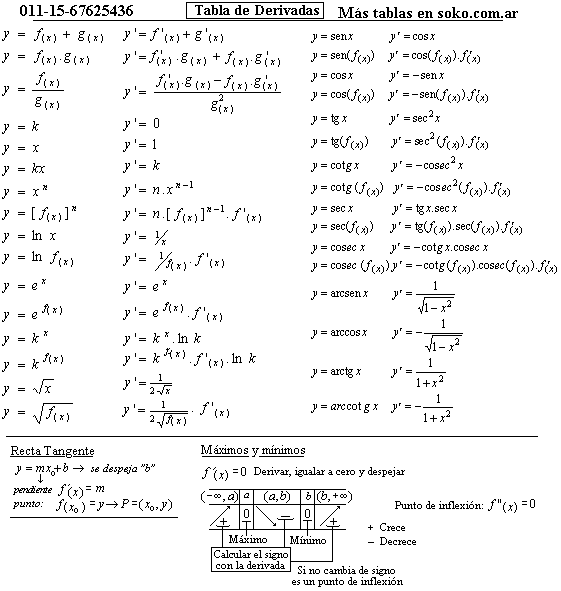 011-15-67625436 Tabla de Derivadas Más tablas en soko.com.ar
y = f(x) + g(x) y' = f'(x) + g'(x)
y = f(x) . g(x) y' = f'(x) . g(x) + f(x) . g'(x)
y = f(x) / g(x) y' = f'(x) . g(x) – f(x) . g'(x) / g²(x)
y = k y' = 0
y = x y' = 1
y = kx y' = k
y = xⁿ y' = n.xⁿ⁻¹
y = [f(x)]ⁿ y' = n.[f(x)]ⁿ⁻¹ . f'(x)
y = ln x y' = 1/x
y = ln f(x) y' = 1/f(x) . f'(x)
y = e^x y' = e^x
y = e^f(x) y' = e^f(x) . f'(x)
y = k^x y' = k^x . ln k
y = k^f(x) y' = k^f(x) . f'(x) . ln k
y = √x y' = 1/2·√x
y = √f(x) y' = 1/2√f(x) · f'(x)
y = sen x y' = cos x
y = sen(f(x)) y' = cos(f(x)).f'(x)
y = cos x y' = –sen x
y = cos(f(x)) y' = –sen(f(x)).f'(x)
y = tg x y' = sec² x
y = tg(f(x)) y' = sec²(f(x)).f'(x)
y = cotg x y' = –cosec² x
y = cotg (f(x)) y' = –cosec²(f(x)).f'(x)
y = sec x y' = tg x.sec x
y = sec(f(x)) y' = tg(f(x)).sec(f(x)).f'(x)
y = cosec x y' = –cotg x.cosec x
y = cosec (f(x)) y' = –cotg(f(x)).cosec(f(x)).f'(x)
y = arcsen x y' = 1/√1–x²
y = arccos x y' = –1/√1–x²
y = arctg x y' = 1/1+x²
y = arccotg x y' = –1/1+x²
Recta Tangente
y = mx₀+b → se despeja "b"
↓
pendiente f'(x) = m
punto: f(x₀) = y → P=(x₀,y)
Máximos y mínimos
f'(x) = 0 Derivar, igualar a cero y despejar
(–∞,a) a (a,b) b (b,+∞)
0 0
+ – +
Máximo Mínimo
Calcular el signo
con la derivada
Si no cambia de signo
es un punto de inflexión
Punto de inflexión: f''(x) = 0
+ Crece
– Decrece